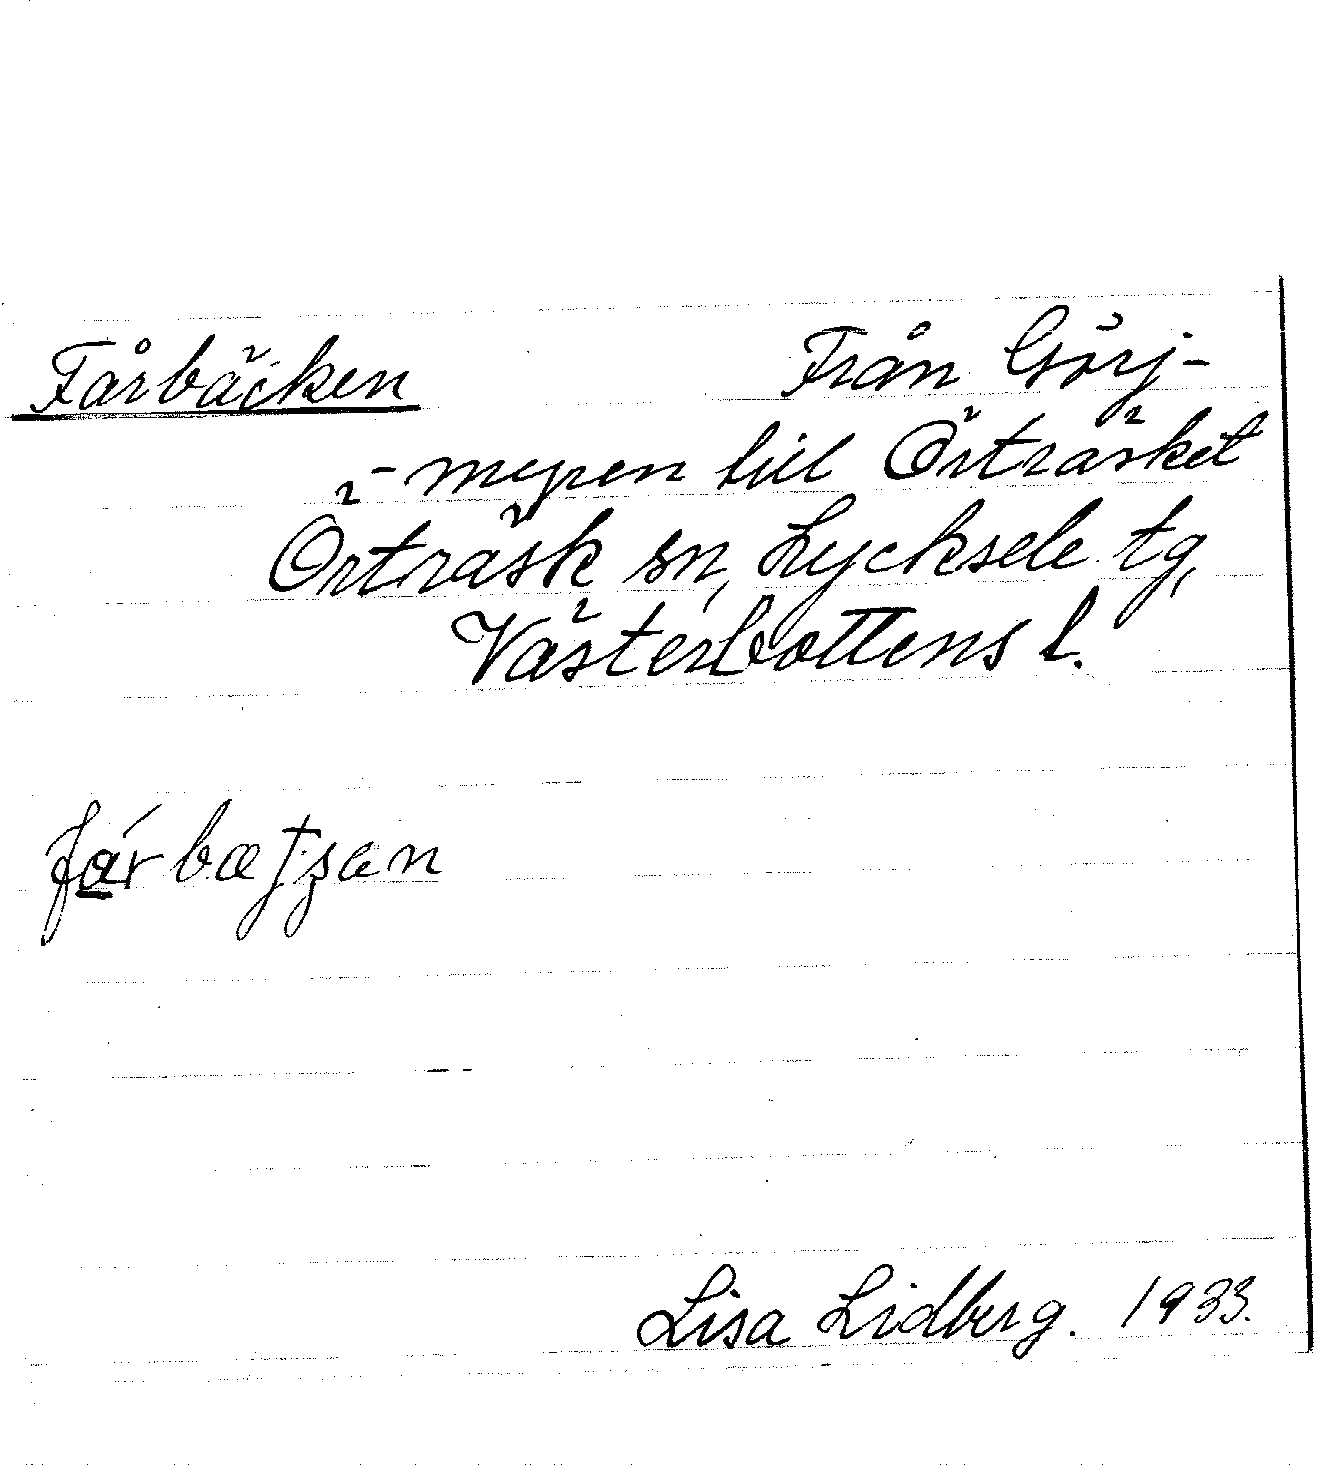 Fårbäcken
Från Görj-
-myren till Örträsket
Örträsk sn, Lycksele tg,
Västerbottens l.
Lisa Lidberg. 1933.